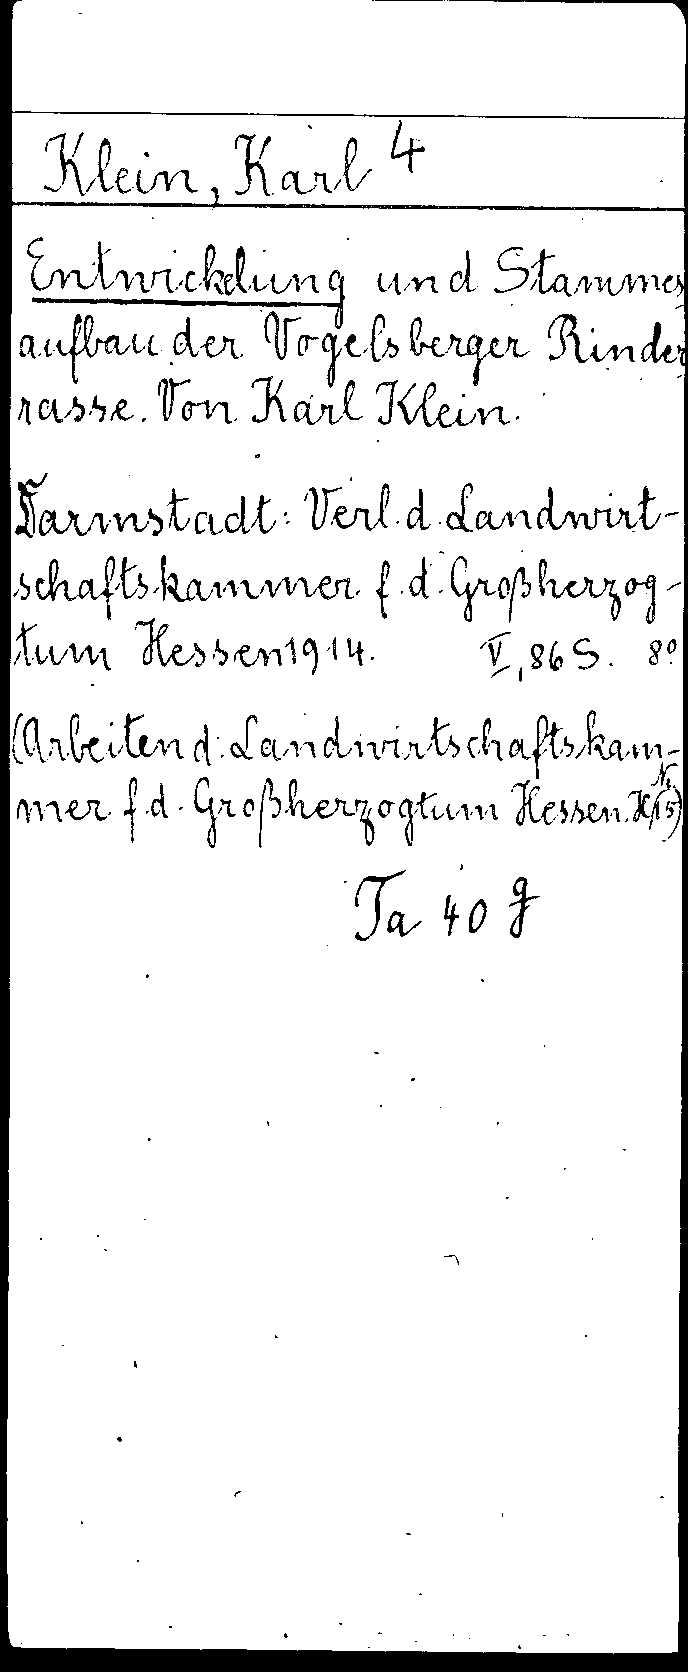 Klein, Karl 4
Entwicklung und Stammes-
aufbau der Vogelsberger Rinder-
rasse. Von Karl Klein.
Darmstadt: Verl. d. Landwirt-
schaftskammer f. d. Großherzog-
tum Hessen 1914. V, 86 S. 8°
(Arbeiten d. Landwirtschaftskam-
mer f. d. Großherzogtum Hessen. Nr. 15)
Ta 40 g